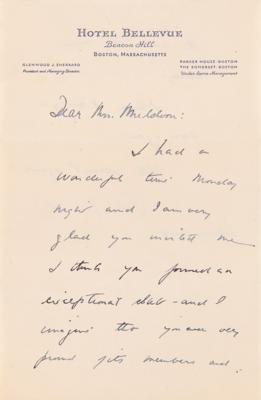 HOTEL BELLEVUE
Beacon Hill
BOSTON, MASSACHUSETTS
GLENWOOD J. SHERRARD
President and Managing Director
PARKER HOUSE·BOSTON
THE SOMERSET·BOSTON
Under Same Management
Dear Mr. Muldoon:
I had a
wonderful time Monday
night and I am very
glad you invited me
I think you formed an
exceptional club - and I
imagine tht you are very
proud of its members and